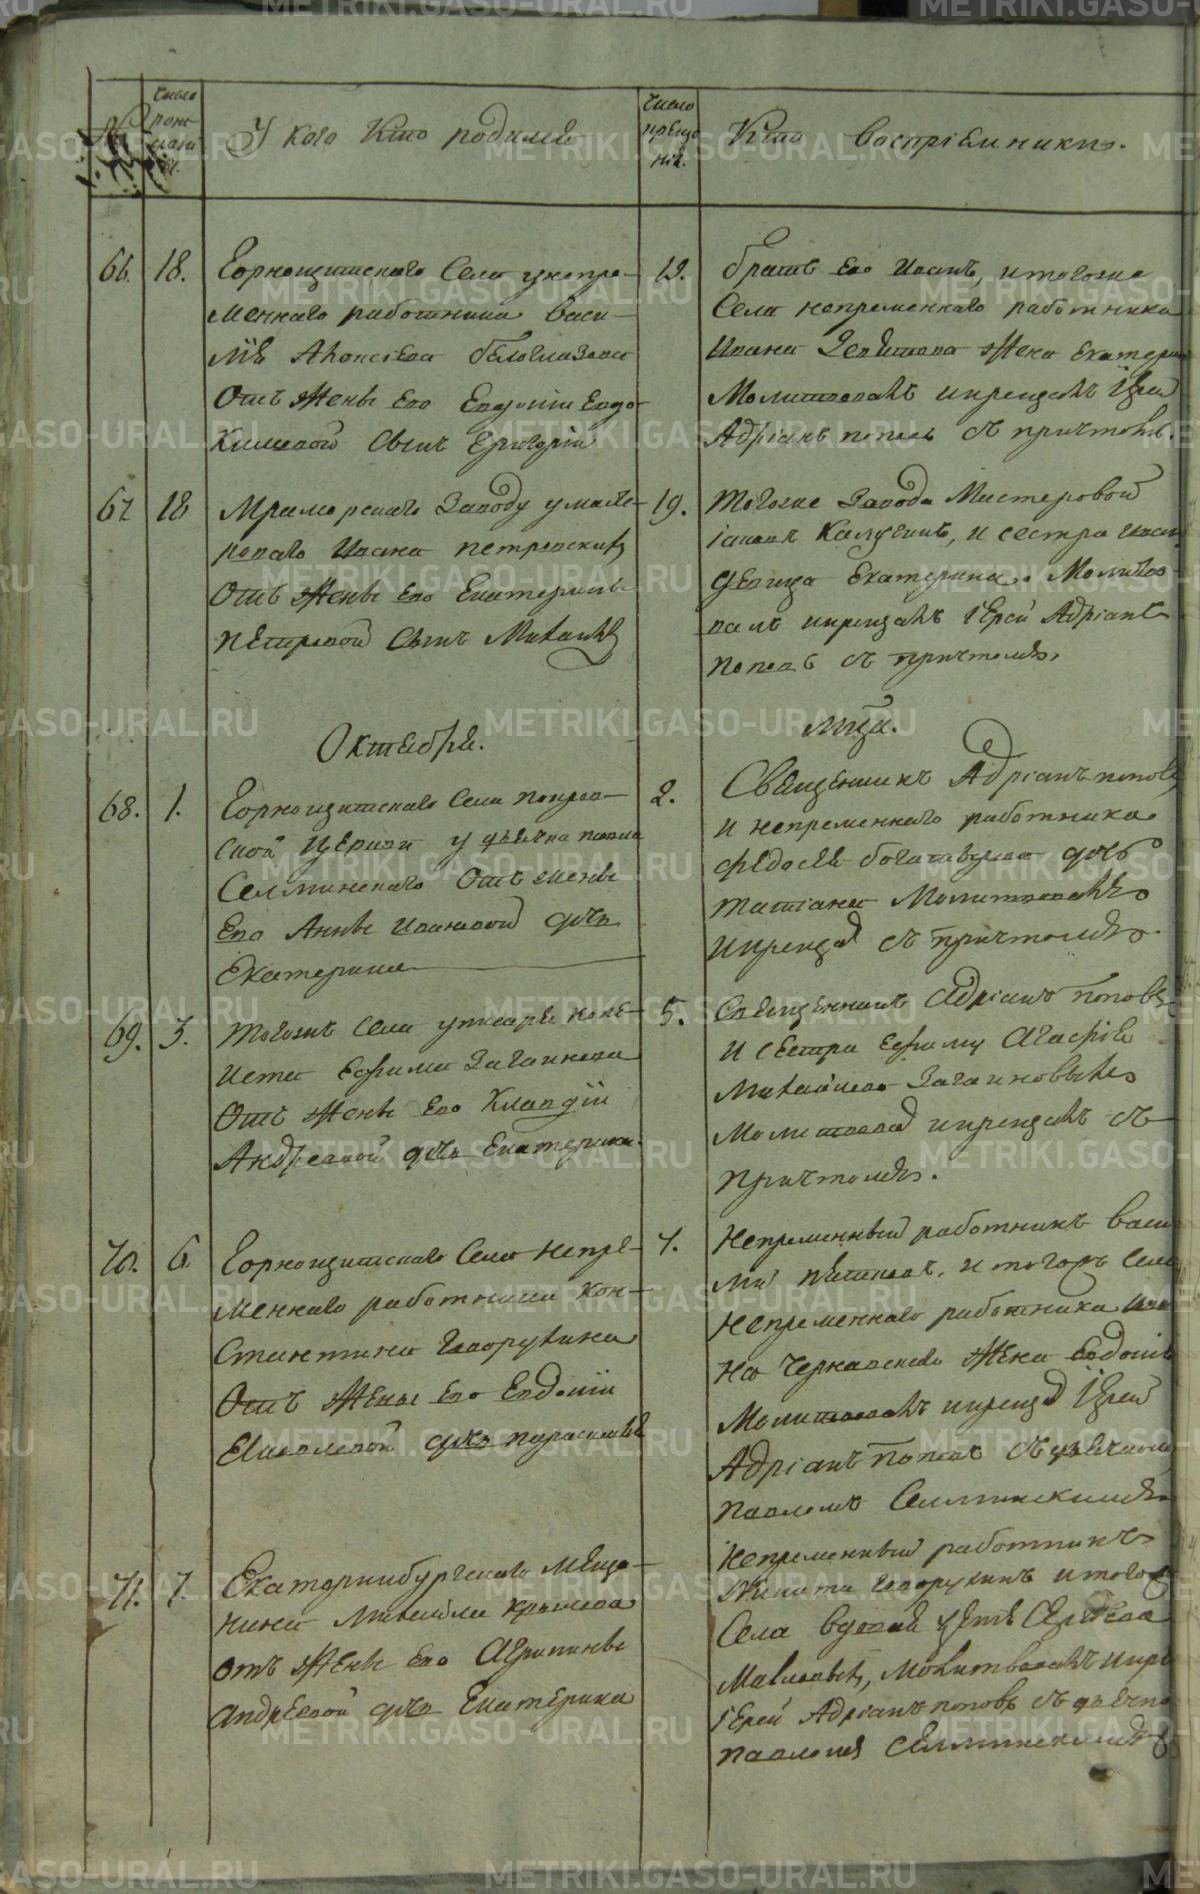 Число рож
У кого Кто родился
Число креще
нія.
Кто воспріемники.
66.
18.
Горнощитскаго Села у непре-
меннаго работника Васи-
лія Афонсіева Белоглазова
Отъ жены Его Евдокіи Евдо-
кимовой Сынъ Григорій
19.
братъ Его Иванъ, и тогоже
Села непременнаго работника
Ивана жена Екатери
Молитвовалъ и крещалъ Іерей
Адріанъ поповъ съ причтомъ.
67
18
Мраморскаго Заводу у масте-
роваго Ивана Петровскихъ
Отъ жены Его Екатерины
Петровой Сынъ Михаилъ
19.
Тогоже Завода Мастеровой
Калугинъ, и сестра
девица Екатерина. Молитво-
валъ и крещалъ Іерей Адріанъ
поповъ съ причтомъ.
Октября.
Мца.
68.
1.
Горнощитскаго Села покров-
ской Церкви у дьячка павла
Селминскаго Отъ жены
Его Анны Ивановой дочь
Екатерина
2.
Священникъ Адріанъ поповъ
и непременнаго работника
федосея дочь
татіана Молитвовалъ
и крещал съ причтомъ
69.
3.
Тогожъ Села у писаря копе-
иста Ефима Загаинова
Отъ жены Его Клавдіи
Андреевой дочь Екатерина.
5.
Священникъ Адріанъ поповъ
и сестра Ефиму Агафія
Михайлова Загаиновыхъ
Молитвовал и крещалъ съ
причтомъ.
70.
6
Горнощитскаго Села непре-
меннаго работника кон-
стантина Говорухина
Отъ жены Его Евдокіи
дочь парасковья
7.
Непременный работникъ васи
лій и тогожъ Села
непременнаго работника Ива
на Чернавскаго жена Евдокія
Молитвовалъ и крещал Іерей
Адріанъ поповъ съ дьячкомъ
павломъ Селминскимъ
71.
7.
Екатеринбургскаго Меща-
нина Михаила Крылова
отъ жены Его Агрипины
андреевой дочь Екатерина
Непременный работникъ
Никита Говорухинъ и тогожъ
Села
Молитвовалъ и кре
Іерей Адріанъ поповъ съ дьячко
павломъ Селминскимъ
METRIKI.GASO-URAL.RU